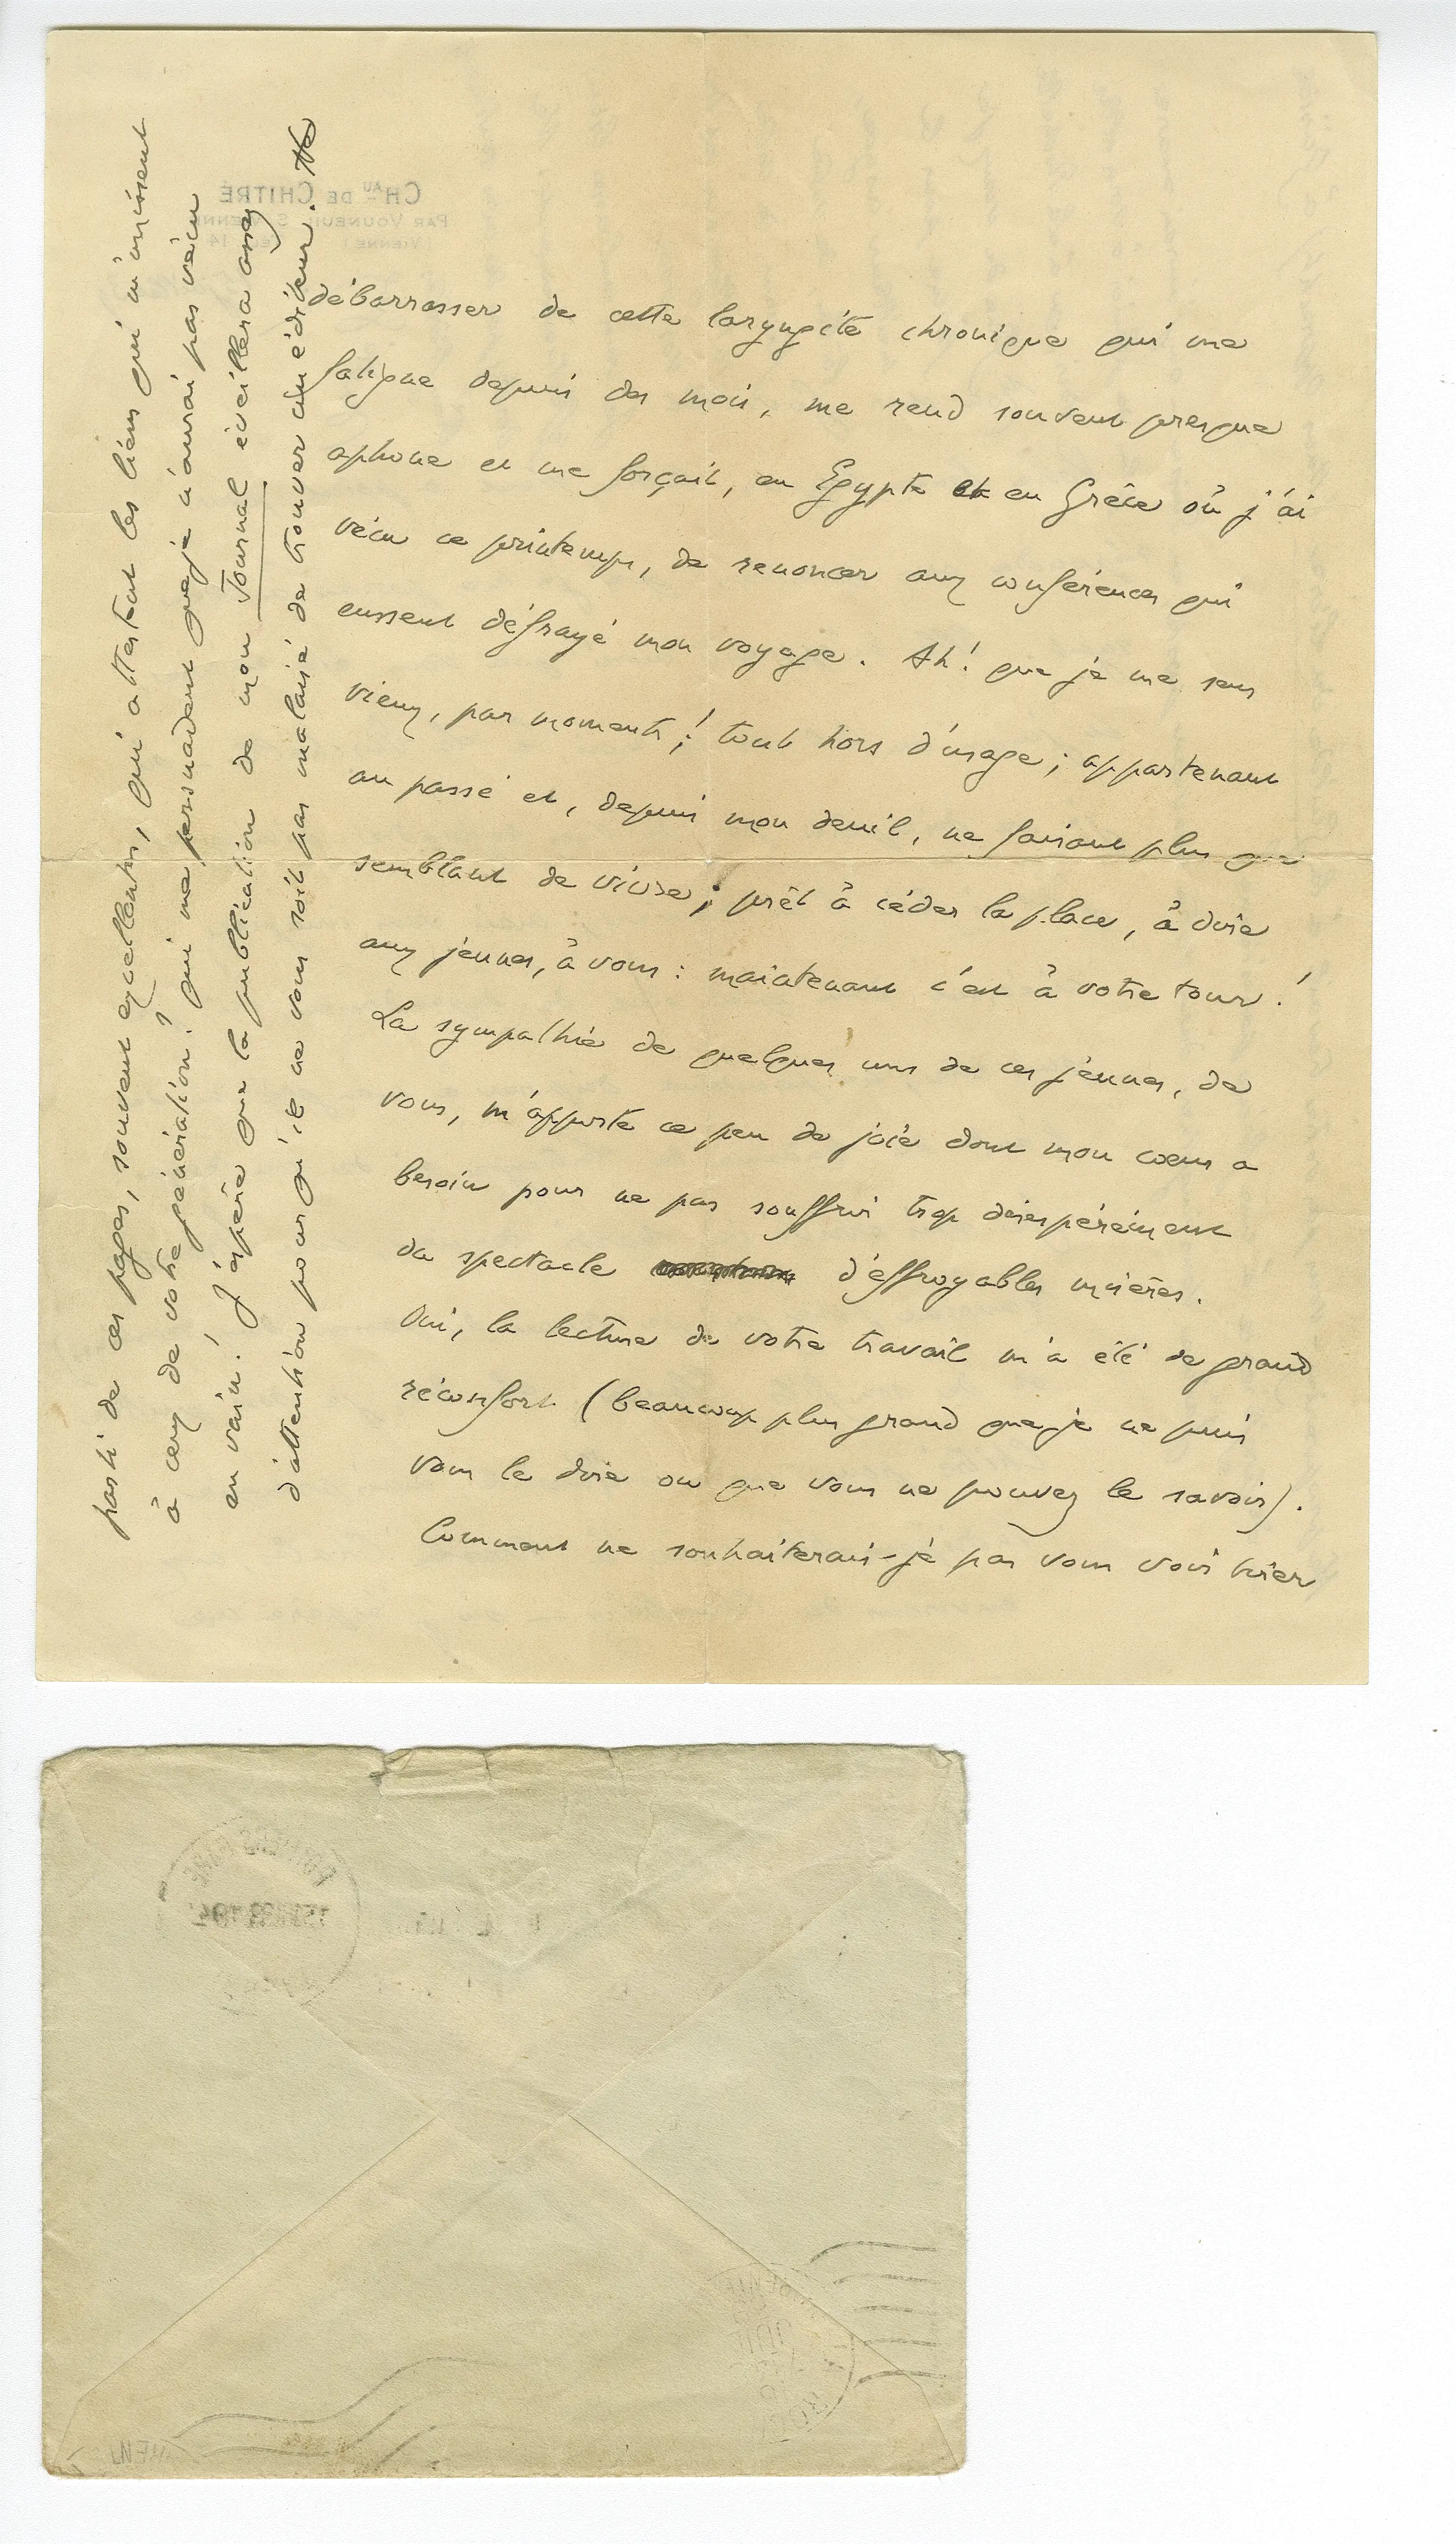 débarrasser de cette laryngite chronique qui me
fatigue depuis des mois, me rend souvent presque
aphone et me forçait, en Egypte et en Grèce où j'ai
vécu ce printemps, de renoncer aux conférences qui
eussent défrayé mon voyage. Ah! que je me sens
vieux, par moments! tout hors d'usage; appartenant
au passé et, depuis mon deuil, ne faisant plus que
semblant de vivre; prêt à céder la place, à dire
aux jeunes, à vous: maintenant c'est à votre tour!
La sympathie de quelques uns de ces jeunes, de
vous, m'apporte ce peu de joie dont mon cœur a
besoin pour ne pas souffrir trop désespérément
du spectacle d'effroyables misères.
Oui, la lecture de votre travail m'a été de grand
réconfort (beaucoup plus grand que je ne puis
vous le dire ou que vous ne pouvez le savoir).
Comment ne souhaiterais-je pas vous voir tirer
parti de ces pages, souvent excellentes, qui attestent les liens qui m'unissent
à ceux de votre génération! qui me persuadent que je n'aurai pas vécu
en vain! J'espère que la publication de mon Journal éveillera assez
d'attention pour qu'il ne vous soit pas malaisé de trouver un éditeur.
CHAU DE CHITRÉ
PAR VOUNEUIL S/ VIENNE
(VIENNE) TÉL. 14